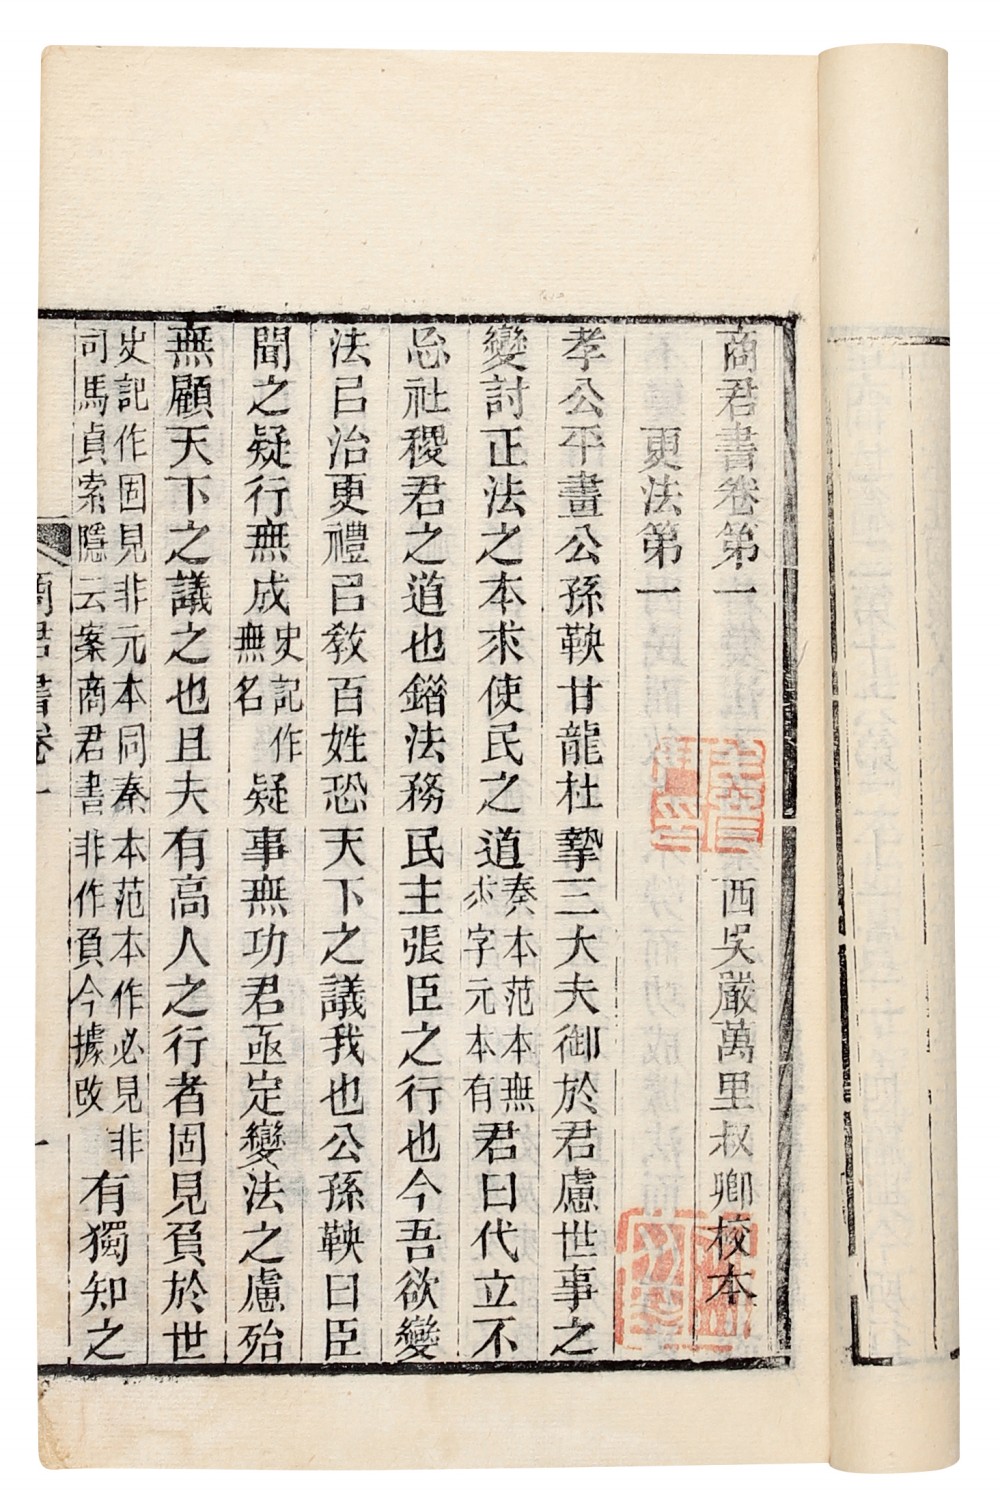 商君書卷第一
西吳嚴萬里叔卿校本
更法第一
孝公平畫公孫鞅甘龍杜摯三大夫御於君慮世事之
變討正法之本求使民之道秦本范本無求字元本有君曰代立不
忘社稷君之道也錯法務民主張臣之行也今吾欲變
法㠯治更禮㠯敎百姓恐天下之議我也公孫鞅曰臣
聞之疑行無成史記作無名疑事無功君亟定變法之慮殆
無顧天下之議之也且夫有高人之行者固見負於世
史記作固見非元本同秦本范本作必見非司馬貞索隱云案商君書非作負今據改有獨知之
商君書卷一
一